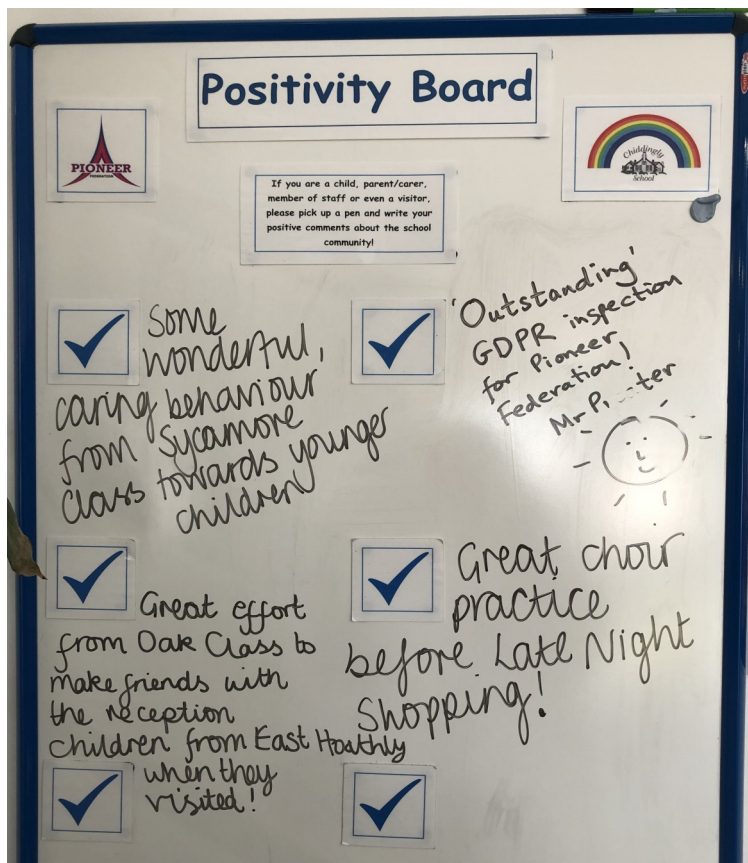 Positivity Board
PIONEER
FEDERATION
Chiddingly
School
If you are a child, parent/carer,
member of staff or even a visitor,
please pick up a pen and write your
positive comments about the school
community!
Some
wonderful,
caring behaviour
from Sycamore
Class towards younger
children
'Outstanding'
GDPR inspection
for Pioneer
Federation!
Mr
Great effort
from Oak Class to
make friends with
the reception
children from East Hoathly
when they
visited!
Great choir
practice
before Late Night
Shopping!